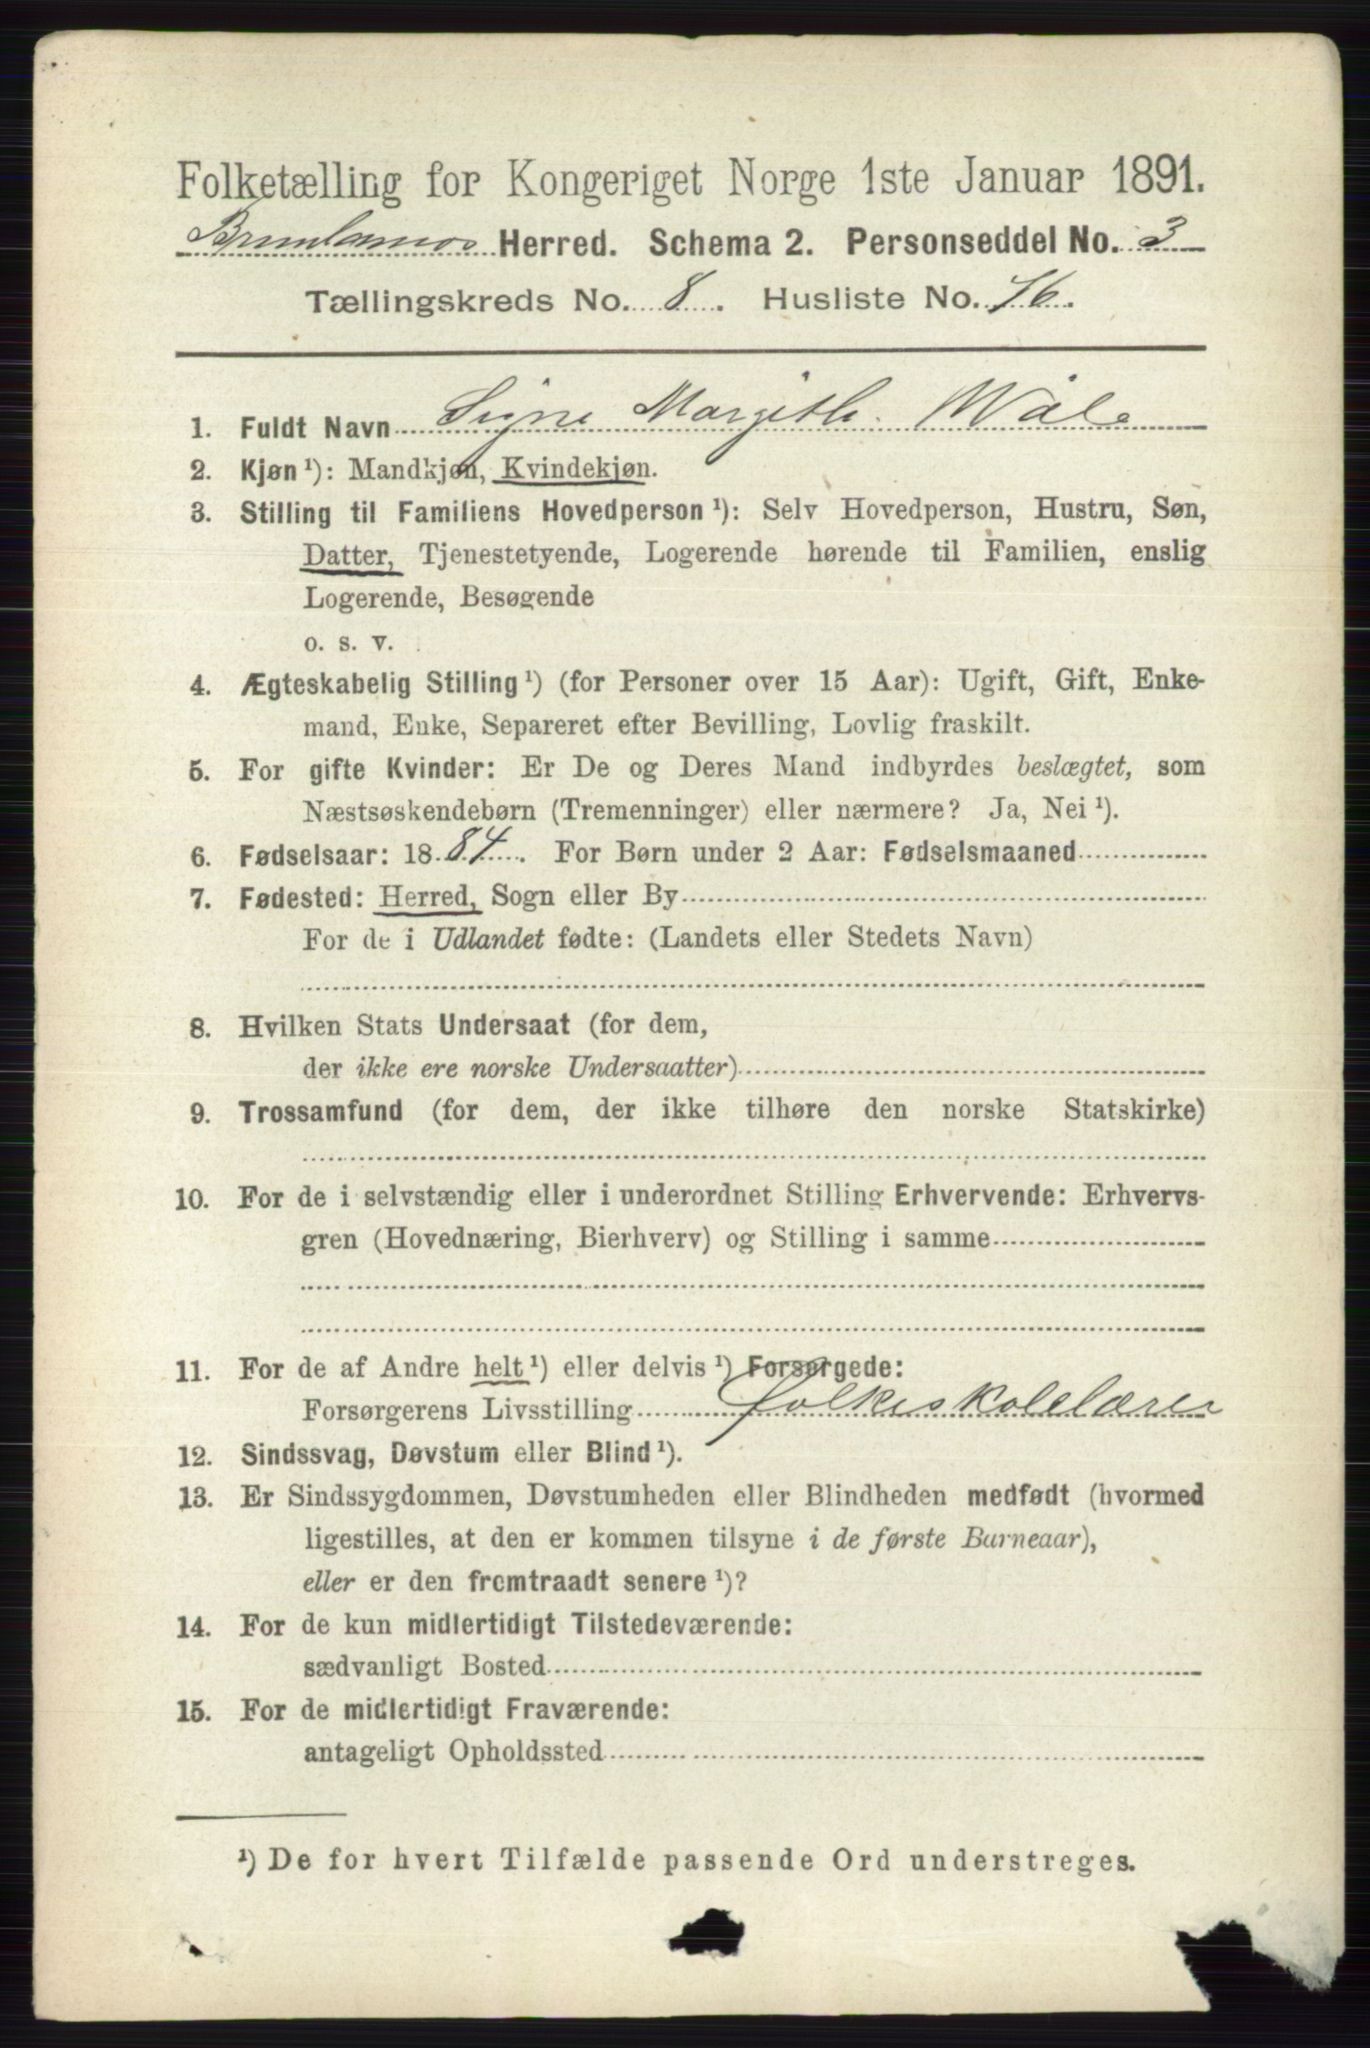 Folketælling for Kongeriget Norge 1ste Januar 1891.
Brunlanæs Herred. Schema 2. Personseddel No. 3
Tællingskreds No. 8. Husliste No. 76.
1. Fuldt Navn Signe Margith. Wåle
2. Kjøn¹): Mandkjøn, Kvindekjøn.
3. Stilling til Familiens Hovedperson¹): Selv Hovedperson, Hustru, Søn,
Datter, Tjenestetyende, Logerende hørende til Familien, enslig
Logerende, Besøgende
o. s. v.
4. Ægteskabelig Stilling¹) (for Personer over 15 Aar): Ugift, Gift, Enke-
mand, Enke, Separeret efter Bevilling, Lovlig fraskilt.
5. For gifte Kvinder: Er De og Deres Mand indbyrdes beslægtet, som
Næstsøskendebørn (Tremenninger) eller nærmere? Ja, Nei¹).
6. Fødselsaar: 1884. For Børn under 2 Aar: Fødselsmaaned
7. Fødested: Herred, Sogn eller By
For de i Udlandet fødte: (Landets eller Stedets Navn)
8. Hvilken Stats Undersaat (for dem,
der ikke ere norske Undersaatter)
9. Trossamfund (for dem, der ikke tilhøre den norske Statskirke)
10. For de i selvstændig eller i underordnet Stilling Erhvervende: Erhvervs-
gren (Hovednæring, Bierhverv) og Stilling i samme
11. For de af Andre helt¹) eller delvis¹) Forsørgede:
Forsørgerens Livsstilling folkeskolelærer
12. Sindssvag, Døvstum eller Blind¹).
13. Er Sindssygdommen, Døvstumheden eller Blindheden medfødt (hvormed
ligestilles, at den er kommen tilsyne i de første Barneaar),
eller er den fremtraadt senere¹)?
14. For de kun midlertidigt Tilstedeværende:
sædvanligt Bosted
15. For de midlertidigt Fraværende:
antageligt Opholdssted
¹) De for hvert Tilfælde passende Ord understreges.